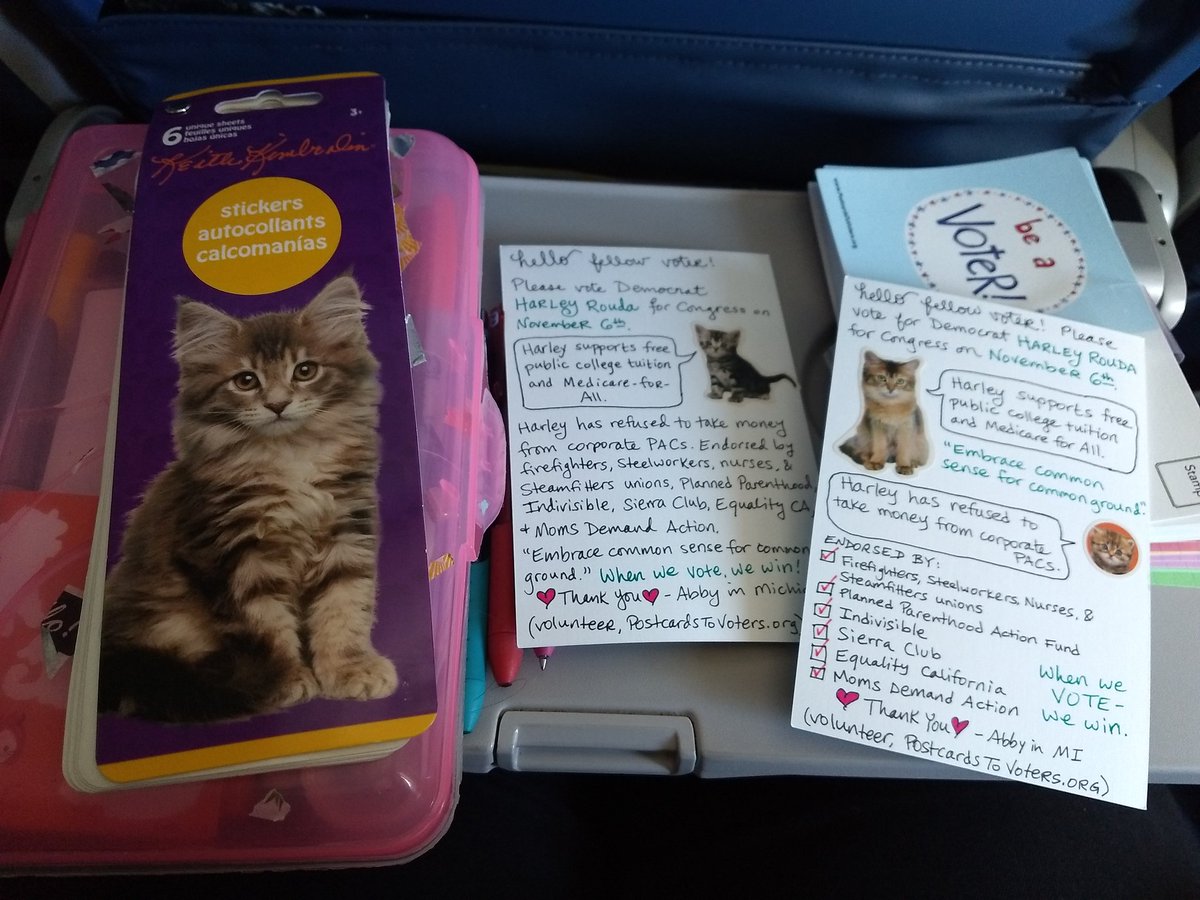 6 unique sheets
feuilles uniques
hojas únicas
3+
Keith Kimberlin
stickers
autocollants
calcomanías
hello fellow voter!
Please vote Democrat
HARLEY ROUDA for Congress on
NOVEMBER 6th.
Harley supports free
public college tuition
and Medicare-for-
All.
Harley has refused to take money
from corporate PACs. Endorsed by
firefighters, Steelworkers, nurses, &
Steamfitters unions, Planned Parenthood,
Indivisible, Sierra Club, Equality CA
+ Moms Demand Action.
"Embrace common sense for common
ground." When we vote, we win!
Thank You - Abby in
(volunteer, PostcardsToVoters.org)
be a
VoteR!
hello fellow voter! Please
vote for Democrat HARLEY ROUDA
for Congress on NOVEMBER 6th.
Harley supports free
public college tuition
and Medicare for All.
"Embrace common
sense for common ground."
Harley has refused to
take money from corporate
PACs.
ENDORSED BY:
Firefighters, Steelworkers, Nurses, &
Steamfitters unions
Planned Parenthood Action Fund
Indivisible
Sierra Club
Equality California
Moms Demand Action
When we
VOTE-
we win.
Thank You - Abby in MI
(volunteer, PostcardsToVoters.ORG)